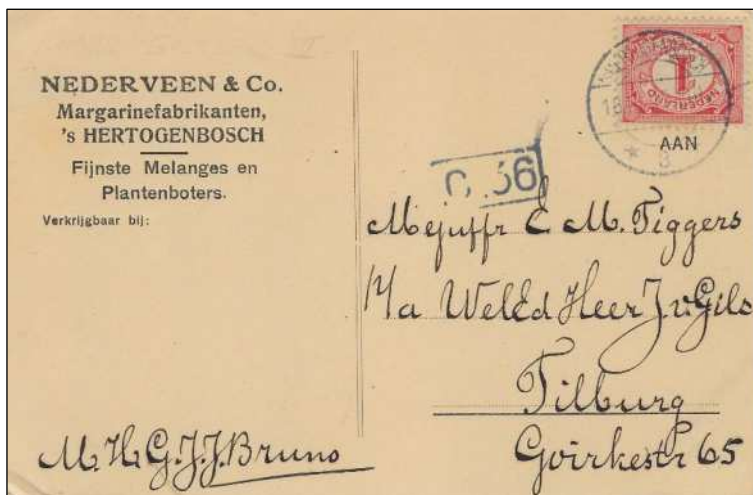 NEDERVEEN & Co.
Margarinefabrikanten,
's HERTOGENBOSCH
Fijnste Melanges en
Plantenboters.
Verkrijgbaar bij:
M. H. G. J. J. Bruno
NEDERLAND
1
AAN
Mejuffr E M. Tiggers
p/a WelEd Heer J v. Gils
Tilburg
Goirkestr 65